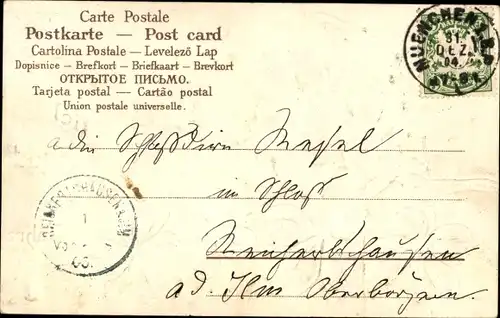 Carte Postale
Postkarte — Post card
Cartolina Postale — Levelező Lap
Dopisnice — Brefkort — Briefkaart — Brevkort
ОТКРЫТОЕ ПИСЬМО.
Tarjeta postal — Cartão postal
Union postale universelle.
MUENCHEN
31
DEZ.
04
im Schloß
Reichertshausen
a.d. Ilm Oberbayern.
REICHERTSHAUSEN
1
05